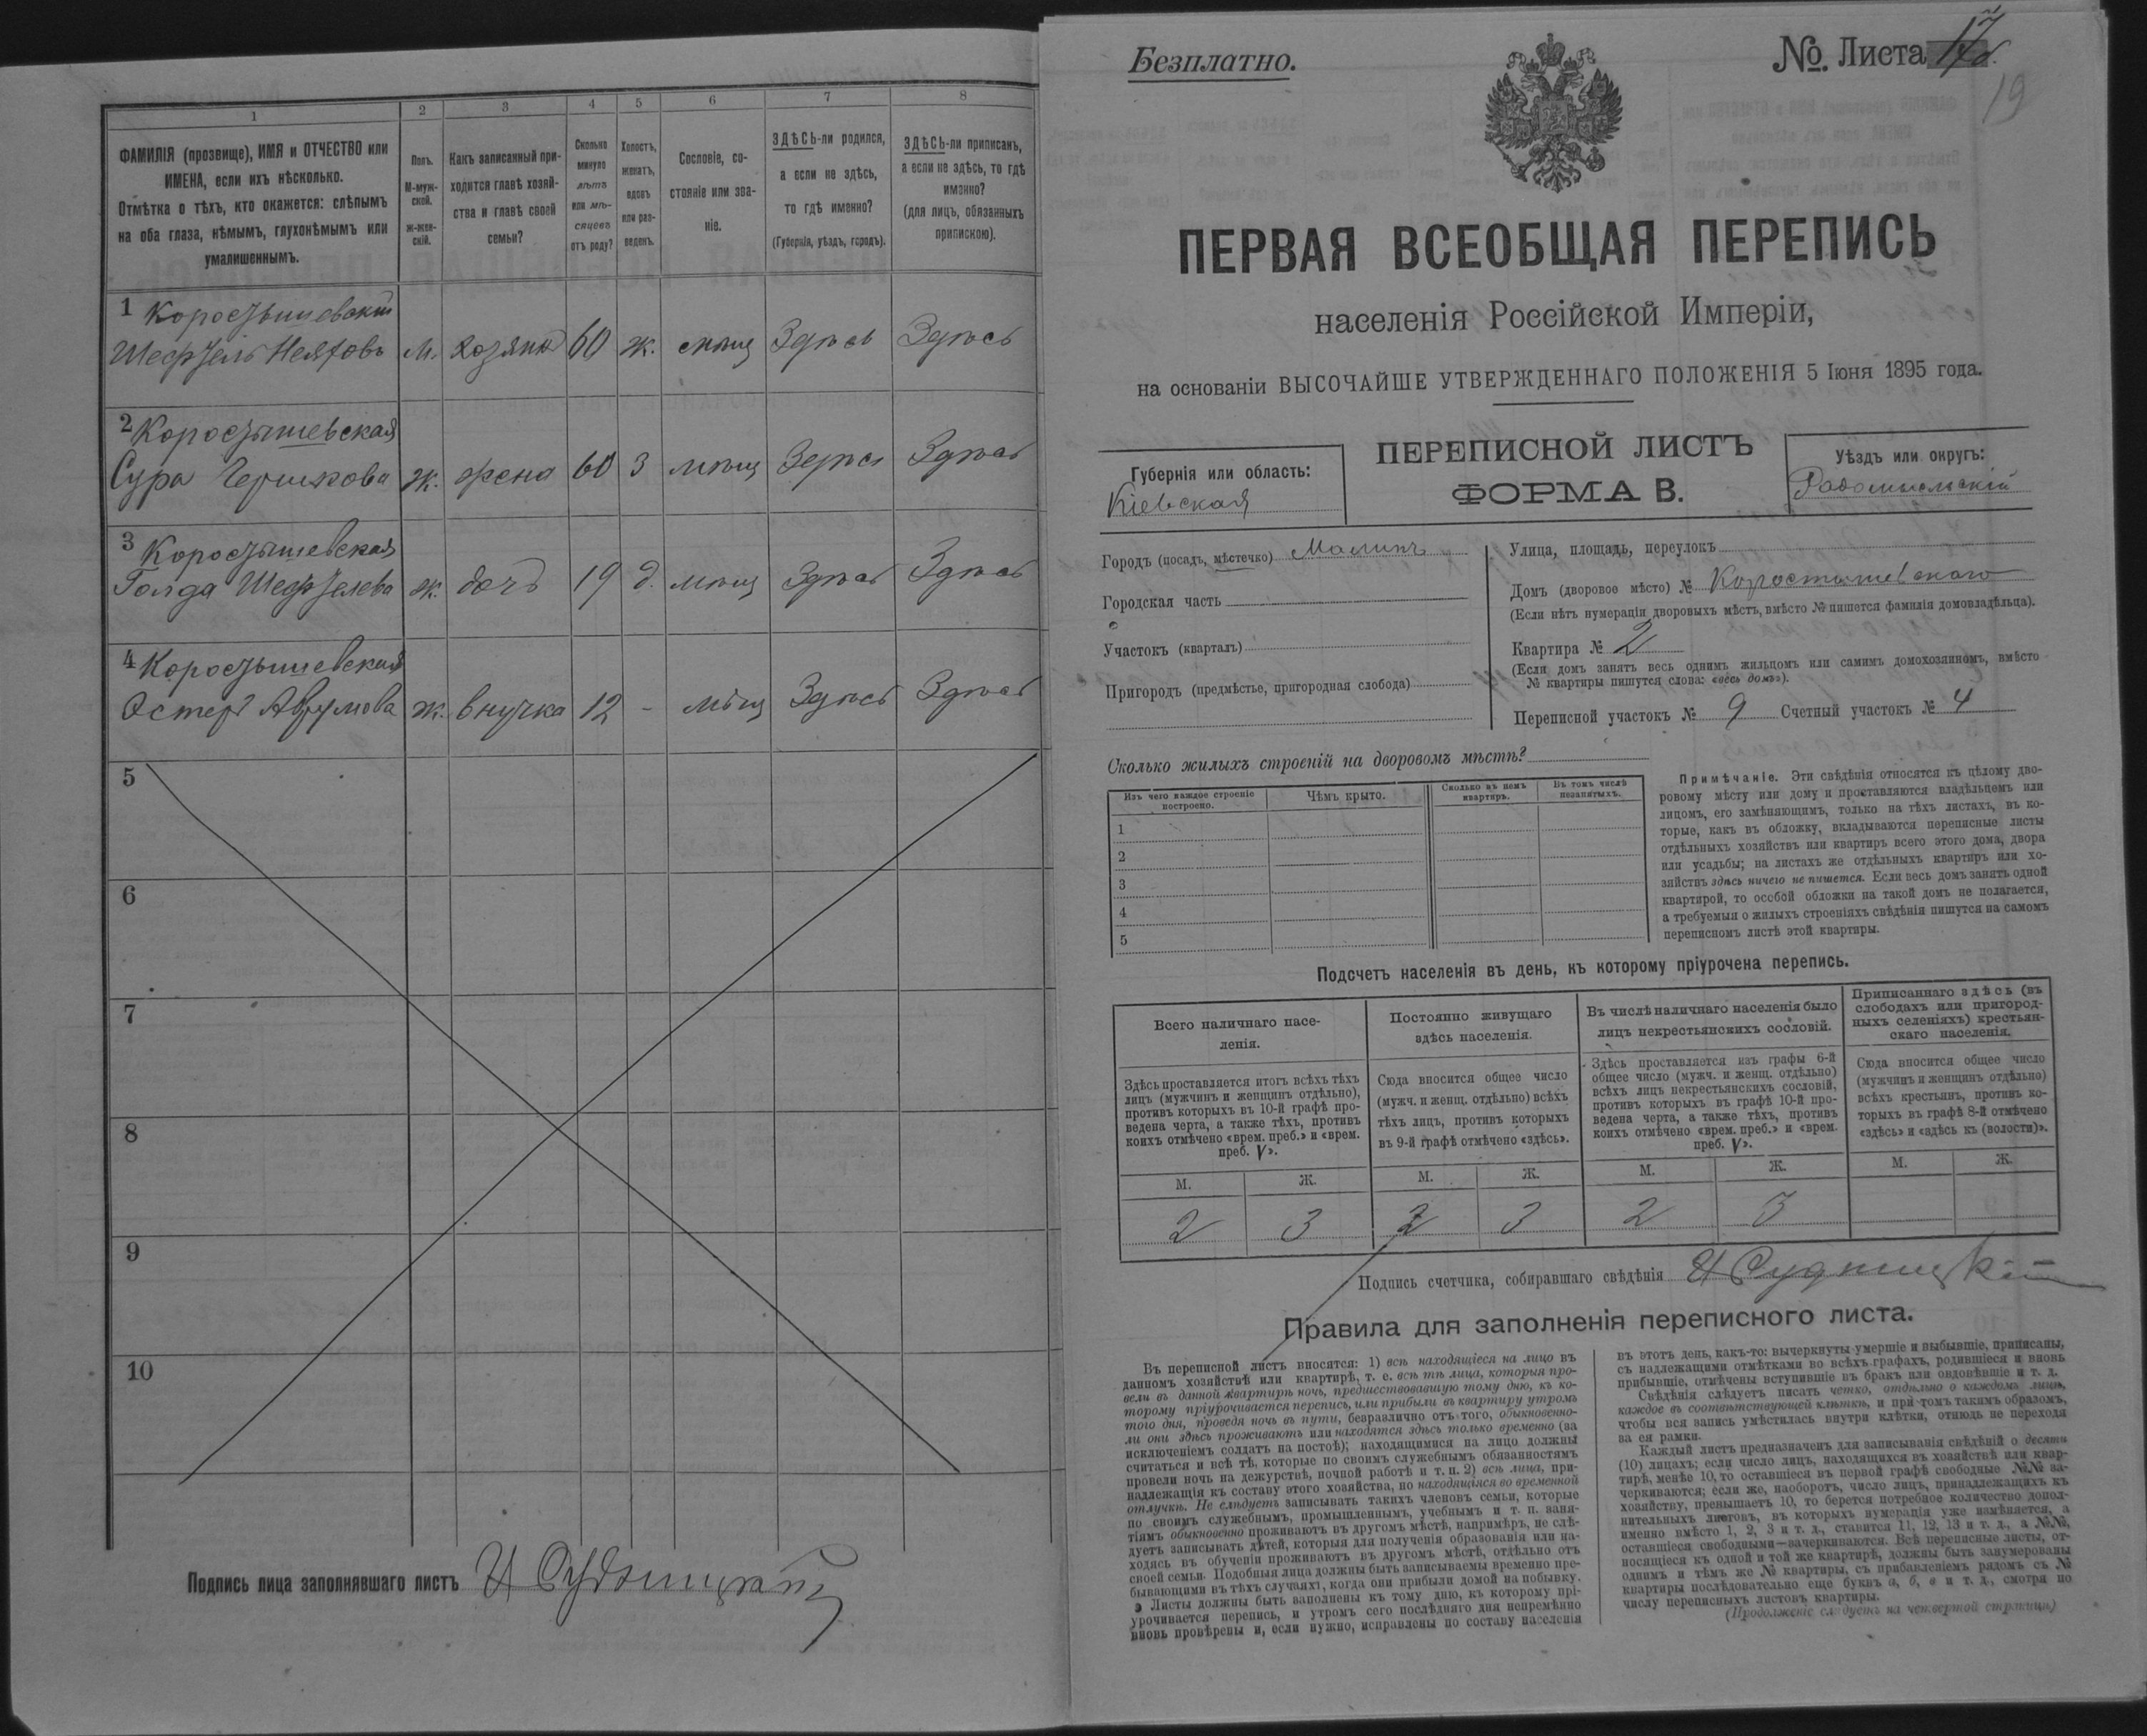 1
2
3
4
5
6
7
8
ФАМИЛІЯ (прозвище), ИМЯ и ОТЧЕСТВО или
ИМЕНА, если ихъ нѣсколько.
Отмѣтка о тѣхъ, кто окажется: слѣпымъ
на оба глаза, нѣмымъ, глухонѣмымъ или
умалишеннымъ.
Полъ.
М-муж-
ской.
Ж-жен-
скій.
Какъ записанный при-
ходится главѣ хозяй-
ства и главѣ своей
семьи?
Сколько
минуло
лѣтъ
или мѣ-
сяцевъ
отъ роду?
Холостъ,
женатъ,
вдовъ
или раз-
веденъ.
Сословіе, со-
стояніе или зва-
ніе.
ЗДѢСЬ-ли родился,
а если не здѣсь,
то гдѣ именно?
(Губернія, уѣздъ, городъ).
ЗДѢСЬ-ли приписанъ,
а если не здѣсь, то гдѣ
именно?
(для лицъ, обязанныхъ
припискою).
1 Коростышевскій
Шефтель м. хозяинъ 60 ж. мѣщ Здѣсь Здѣсь
2 Коростышевская
Сура ж. жена 60 З мѣщ Здѣсь Здѣсь
3 Коростышевская
Голда Шефтелева ж. дочь 19 д. мѣщ Здѣсь Здѣсь
4 Коростышевская
Эстеръ Аврумова ж. внучка 12 - мѣщ Здѣсь Здѣсь
5
6
7
8
9
10
Подпись лица заполнявшаго листъ И Судницкій
Безплатно.
№. Листа 17
19
ПЕРВАЯ ВСЕОБЩАЯ ПЕРЕПИСЬ
населенія Россійской Имперіи,
на основаніи ВЫСОЧАЙШЕ УТВЕРЖДЕННАГО ПОЛОЖЕНІЯ 5 Іюня 1895 года.
Губернія или область:
Кіевская
ПЕРЕПИСНОЙ ЛИСТЪ
ФОРМА В.
Уѣздъ или округъ:
Радомысльскій
Городъ (посадъ, мѣстечко) Малинъ
Городская часть
Участокъ (кварталъ)
Пригородъ (предмѣстье, пригородная слобода)
Улица, площадь, переулокъ
Домъ (дворовое мѣсто) № Коростышевскаго
(Если нѣтъ нумераціи дворовыхъ мѣстъ, вмѣсто № пишется фамилія домовладѣльца).
Квартира № 2
(Если домъ занятъ весь однимъ жильцомъ или самимъ домохозяиномъ, вмѣсто
№ квартиры пишутся слова: «весь домъ»).
Переписной участокъ № 9 Счетный участокъ № 4
Сколько жилыхъ строеній на дворовомъ мѣстѣ?
Изъ чего каждое строеніе
построено.
Чѣмъ крыто.
Сколько въ немъ
квартиръ.
Въ томъ числѣ
незанятыхъ.
1
2
3
4
5
Примѣчаніе. Эти свѣдѣнія относятся къ цѣлому дво-
ровому мѣсту или дому и проставляются владѣльцемъ или
лицомъ, его замѣняющимъ, только на тѣхъ листахъ, въ ко-
торые, какъ въ обложку, вкладываются переписные листы
отдѣльныхъ хозяйствъ или квартиръ всего этого дома, двора
или усадьбы; на листахъ же отдѣльныхъ квартиръ или хо-
зяйствъ здѣсь ничего не пишется. Если весь домъ занятъ одной
квартирой, то особой обложки на такой домъ не полагается,
а требуемыя о жилыхъ строеніяхъ свѣдѣнія пишутся на самомъ
переписномъ листѣ этой квартиры.
Подсчетъ населенія въ день, къ которому пріурочена перепись.
Всего наличнаго насе-
ленія.
Постоянно живущаго
здѣсь населенія.
Въ числѣ наличнаго населенія было
лицъ некрестьянскихъ сословій.
Приписаннаго здѣсь (въ
слободахъ или пригород-
ныхъ селеніяхъ) крестьян-
скаго населенія.
Здѣсь проставляется итогъ всѣхъ тѣхъ
лицъ (мужчинъ и женщинъ отдѣльно),
противъ которыхъ въ 10-й графѣ про-
ведена черта, а также тѣхъ, противъ
коихъ отмѣчено «врем. преб.» и «врем.
преб. V».
Сюда вносится общее число
(мужч. и женщ. отдѣльно) всѣхъ
тѣхъ лицъ, противъ которыхъ
въ 9-й графѣ отмѣчено «здѣсь».
Здѣсь проставляется изъ графы 6-й
общее число (мужч. и женщ. отдѣльно)
всѣхъ лицъ некрестьянскихъ сословій,
противъ которыхъ въ графѣ 10-й про-
ведена черта, а также тѣхъ, противъ
коихъ отмѣчено «врем. преб.» и «врем.
преб. V».
Сюда вносится общее число
(мужчинъ и женщинъ отдѣльно)
всѣхъ крестьянъ, противъ ко-
торыхъ въ графѣ 8-й отмѣчено
«здѣсь» и «здѣсь къ (волости)».
М. Ж. М. Ж. М. Ж. М. Ж.
2 3 2 3 2 3
Подпись счетчика, собиравшаго свѣдѣнія И Судницкій
Правила для заполненія переписного листа.
Въ переписной листъ вносятся: 1) всѣ находящіеся на лицо въ
данномъ хозяйствѣ или квартирѣ, т. е. всѣ тѣ лица, которыя про-
вели въ данной квартирѣ ночь, предшествовавшую тому дню, къ ко-
торому пріурочивается перепись, или прибыли въ квартиру утромъ
того дня, проведя ночь въ пути, безразлично отъ того, обыкновенно-
ли они здѣсь проживаютъ или находятся здѣсь только временно (за
исключеніемъ солдатъ на постоѣ); находящимися на лицо должны
считаться и всѣ тѣ, которые по своимъ служебнымъ обязанностямъ
провели ночь на дежурствѣ, ночной работѣ и т. п. 2) всѣ лица, при-
надлежащія къ составу этого хозяйства, но находящіяся во временной
отлучкѣ. Не слѣдуетъ записывать такихъ членовъ семьи, которые
по своимъ служебнымъ, промышленнымъ, учебнымъ и т. п. заня-
тіямъ обыкновенно проживаютъ въ другомъ мѣстѣ, напримѣръ, не слѣ-
дуетъ записывать дѣтей, которыя для полученія образованія или на-
ходясь въ обученіи проживаютъ въ другомъ мѣстѣ, отдѣльно отъ
своей семьи. Подобныя лица должны быть записываемы временно пре-
бывающими въ тѣхъ случаяхъ, когда они прибыли домой на побывку.
Листы должны быть заполнены къ тому дню, къ которому прі-
урочивается перепись, и утромъ сего послѣдняго дня непремѣнно
вновь провѣрены и, если нужно, исправлены по составу населенія
въ этотъ день, какъ-то: вычеркнуты умершіе и выбывшіе, приписаны,
съ надлежащими отмѣтками во всѣхъ графахъ, родившіеся и вновь
прибывшіе, отмѣчены вступившіе въ бракъ или овдовѣвшіе и т. д.
Свѣдѣнія слѣдуетъ писать четко, отдѣльно о каждомъ лицѣ,
каждое въ соотвѣтствующей клѣткѣ, и при томъ такимъ образомъ,
чтобы вся запись умѣстилась внутри клѣтки, отнюдь не переходя
за ея рамки.
Каждый листъ предназначенъ для записыванія свѣдѣній о десяти
(10) лицахъ; если число лицъ, находящихся въ хозяйствѣ или квар-
тирѣ, менѣе 10, то оставшіеся въ первой графѣ свободные №№ за-
черкиваются; если же, наоборотъ, число лицъ, принадлежащихъ къ
хозяйству, превышаетъ 10, то берется потребное количество допол-
нительныхъ листовъ, въ которыхъ нумерація уже измѣняется, а
именно вмѣсто 1, 2, 3 и т. д., ставится 11, 12, 13 и т. д., а №№,
оставшіеся свободными—зачеркиваются. Всѣ переписные листы, от-
носящіеся къ одной и той же квартирѣ, должны быть занумерованы
однимъ и тѣмъ же № квартиры, съ прибавленіемъ рядомъ съ №
квартиры послѣдовательно еще буквъ а, б, в и т. д., смотря по
числу переписныхъ листовъ квартиры.
(Продолженіе слѣдуетъ на четвертой страницѣ)